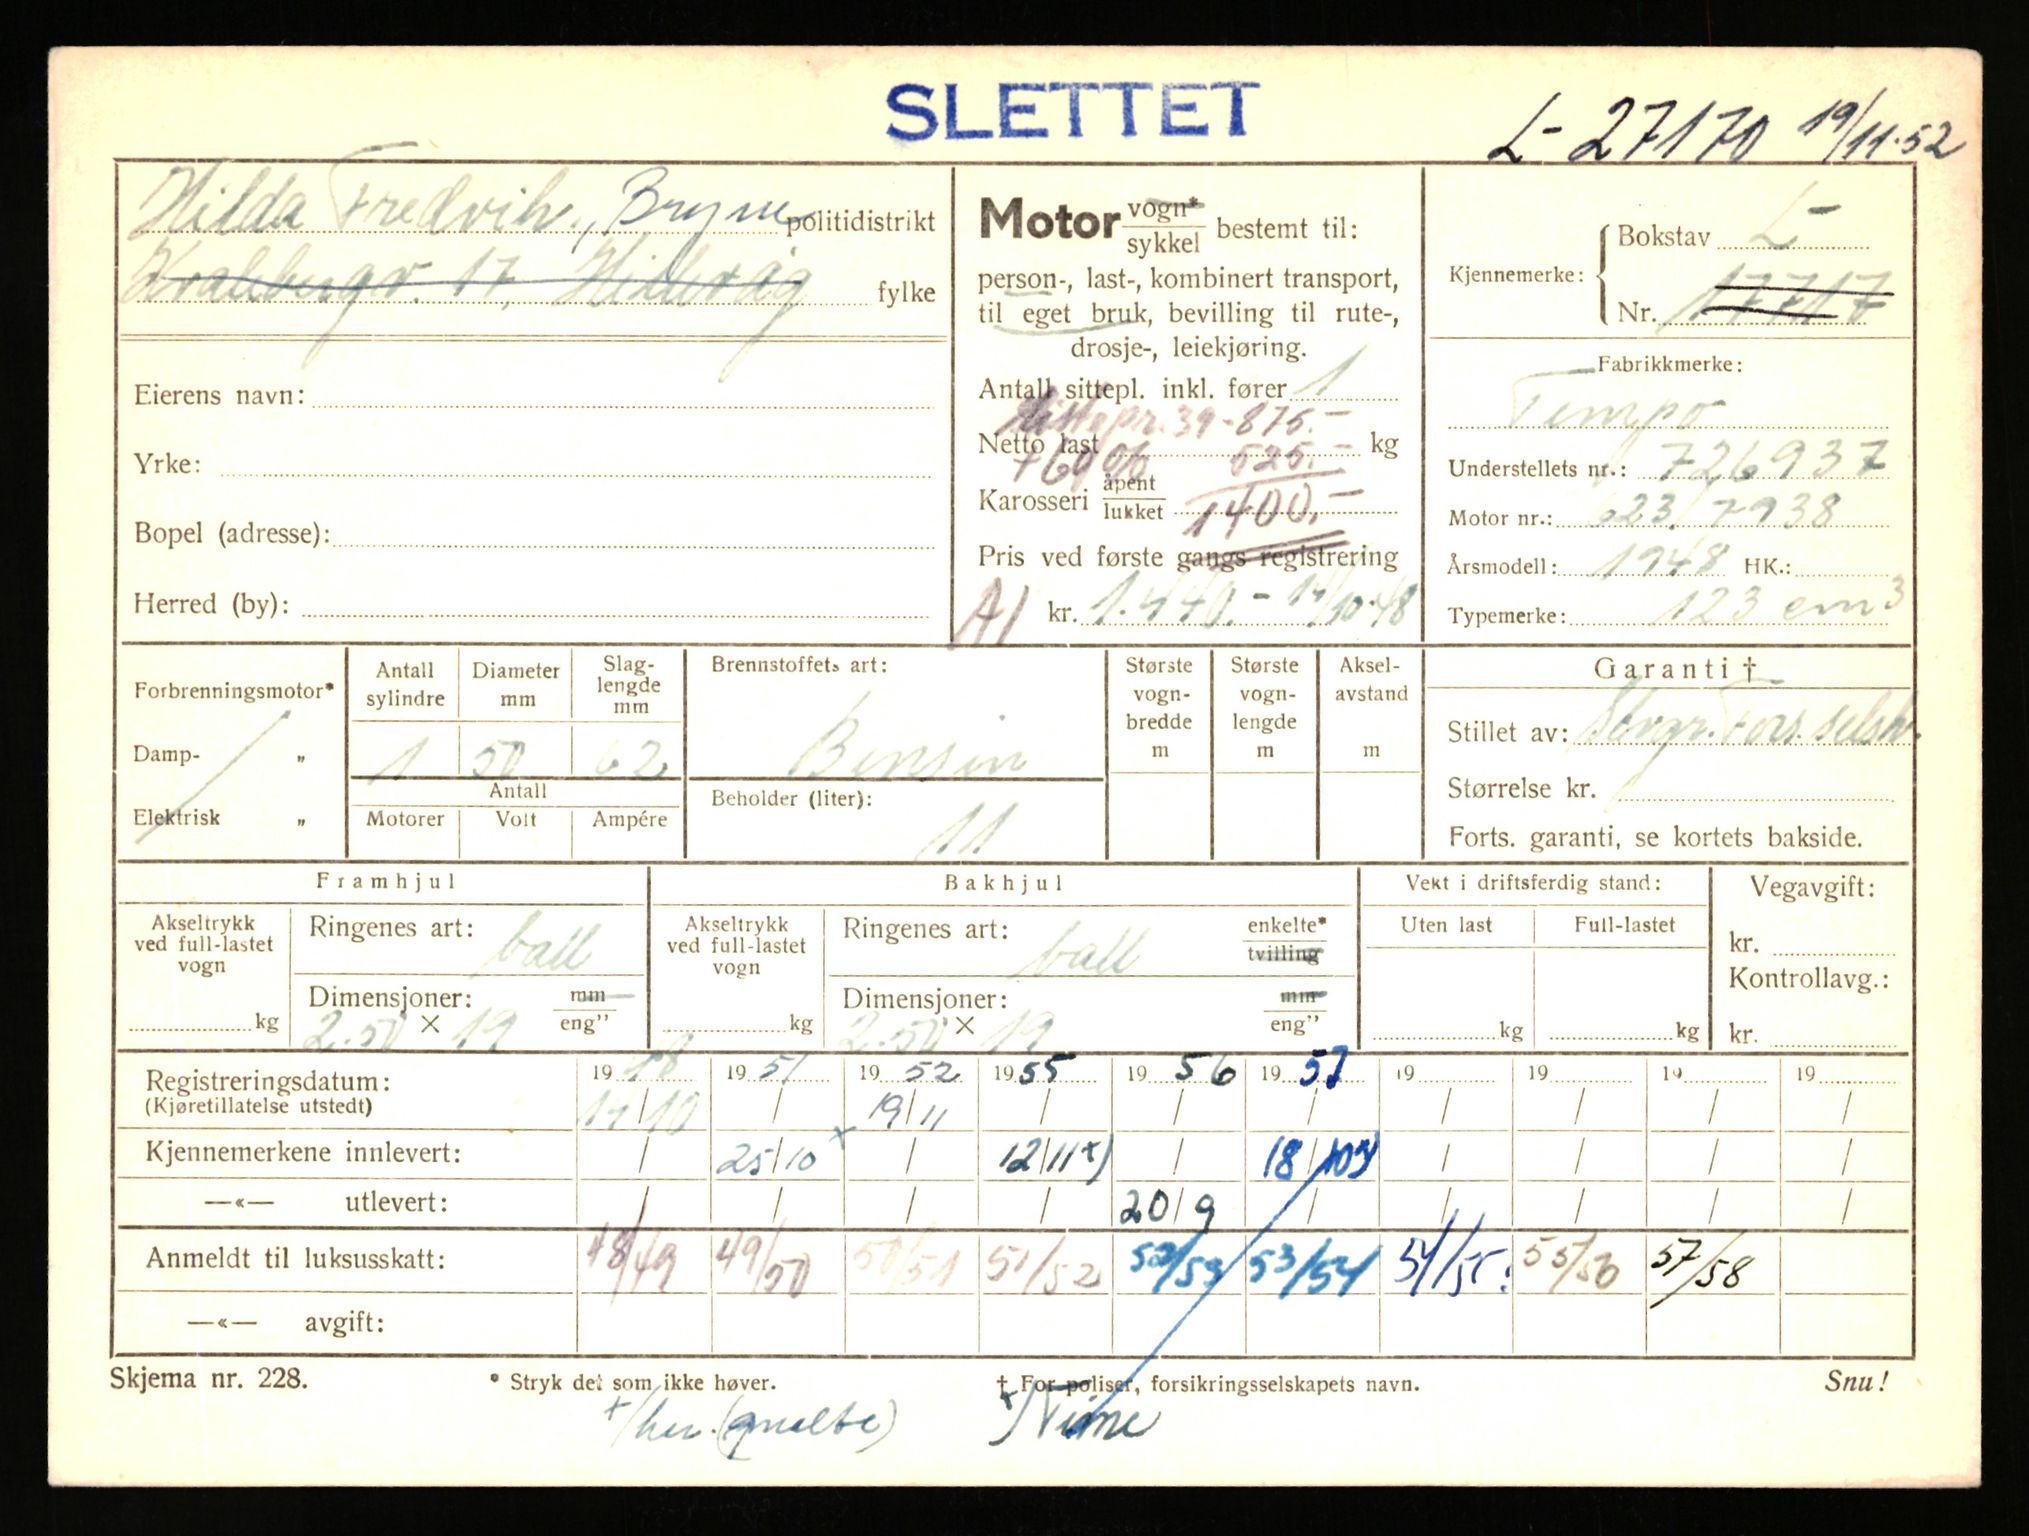 SLETTET
L- 27170 19/11.52
Hilda Fredvik, Bryne politidistrikt
17, Hillevåg fylke
Eierens navn:
Yrke:
Bopel (adresse):
Herred (by):
Motor vogn* / sykkel bestemt til:
person-, last-, kombinert transport,
til eget bruk, bevilling til rute-,
drosje-, leiekjøring.
Antall sittepl. inkl. fører 1
pr. 39 - 875.-
Netto last kg
+ 60% 525.-
Karosseri åpent / lukket 1400.-
Pris ved første gangs registrering
A1 kr. 1.440.- 14/10-48
Kjennemerke: Bokstav L-
Nr. 17717
Fabrikkmerke:
Tempo
Understellets nr.: 726937
Motor nr.: 623/7938
Årsmodell: 1948 HK.:
Typemerke: 123 cm3
Forbrenningsmotor*
Damp- „
Elektrisk „
Antall sylindre
Diameter mm
Slag-lengde mm
1 50 62
Antall
Motorer Volt Ampére
Brennstoffets art:
Bensin
Beholder (liter):
11
Største vogn-bredde m
Største vogn-lengde m
Aksel-avstand m
Garanti †
Stillet av: Fors.selsk.
Størrelse kr.
Forts. garanti, se kortets bakside.
Framhjul
Akseltrykk ved full-lastet vogn
kg
Ringenes art: ball
Dimensjoner: mm / eng"
2.50 × 19
Bakhjul
Akseltrykk ved full-lastet vogn
kg
Ringenes art: ball enkelte* / tvilling
Dimensjoner: mm / eng"
2.50 × 19
Vekt i driftsferdig stand:
Uten last Full-lastet
kg kg
Vegavgift:
kr.
Kontrollavg.:
kr.
Registreringsdatum: 1948 1951 1952 1955 1956 1957 19 19 19 19
(Kjøretillatelse utstedt) 14/10 / 19/11 / / / / / / /
Kjennemerkene innlevert: / 25/10 x / 12/11 x) / 18/10 / / / /
—«— utlevert: / / / / 20/9 / / / / /
Anmeldt til luksusskatt: 48/49 49/50 50/51 51/52 52/53 53/54 54/55 55/56 57/58
—«— avgift:
Skjema nr. 228.
* Stryk det som ikke høver.
† For poliser, forsikringsselskapets navn.
Snu!
+/her.
x